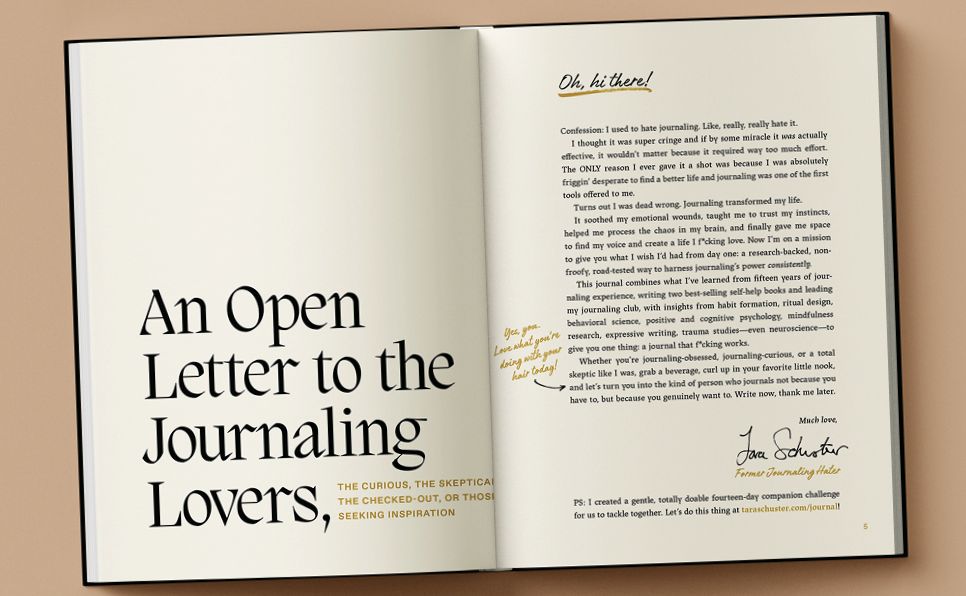 An Open
Letter to the
Journaling
Lovers,
THE CURIOUS, THE SKEPTICAL
THE CHECKED-OUT, OR THOS
SEEKING INSPIRATION
Oh, hi there!
Confession: I used to hate journaling. Like, really, really hate it.
I thought it was super cringe and if by some miracle it was actually
effective, it wouldn't matter because it required way too much effort.
The ONLY reason I ever gave it a shot was because I was absolutely
friggin' desperate to find a better life and journaling was one of the first
tools offered to me.
Turns out I was dead wrong. Journaling transformed my life.
It soothed my emotional wounds, taught me to trust my instincts,
helped me process the chaos in my brain, and finally gave me space
to find my voice and create a life I f*cking love. Now I'm on a mission
to give you what I wish I'd had from day one: a research-backed, non-
froofy, road-tested way to harness journaling's power consistently.
This journal combines what I've learned from fifteen years of jour-
naling experience, writing two best-selling self-help books and leading
my journaling club, with insights from habit formation, ritual design,
behavioral science, positive and cognitive psychology, mindfulness
research, expressive writing, trauma studies—even neuroscience—to
give you one thing: a journal that f*cking works.
Yes, you.
Love what you're
doing with your
hair today!
Whether you're journaling-obsessed, journaling-curious, or a total
skeptic like I was, grab a beverage, curl up in your favorite little nook,
and let's turn you into the kind of person who journals not because you
have to, but because you genuinely want to. Write now, thank me later.
Much love,
Tara Schuster
Former Journaling Hater
PS: I created a gentle, totally doable fourteen-day companion challenge
for us to tackle together. Let's do this thing at taraschuster.com/journal!
5